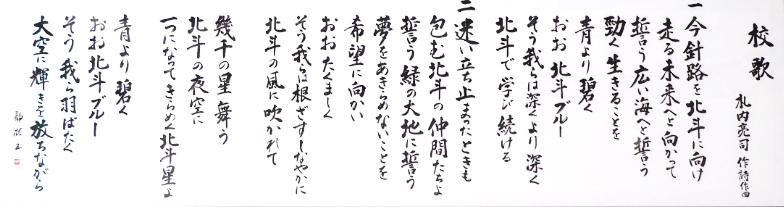 校歌
札内亮司 作詩作曲
一 今針路を北斗に向け
走る未来へと向かって
誓う広い海へと誓う
勁く生きることを
青より碧く
おお 北斗ブルー
そう我らは深くより深く
北斗で学び続ける
二 迷い立ち止まったときも
包む北斗の仲間たちよ
誓う緑の大地に誓う
夢をあきらめないことを
希望に向かい
おお たくましく
そう我らは根ざすしなやかに
北斗の風に吹かれて
幾千の星 舞う
北斗の夜空に
一つになってきらめく北斗星よ
青より碧く
おお 北斗ブルー
そう 我ら羽ばたく
大空に輝きを放ちながら